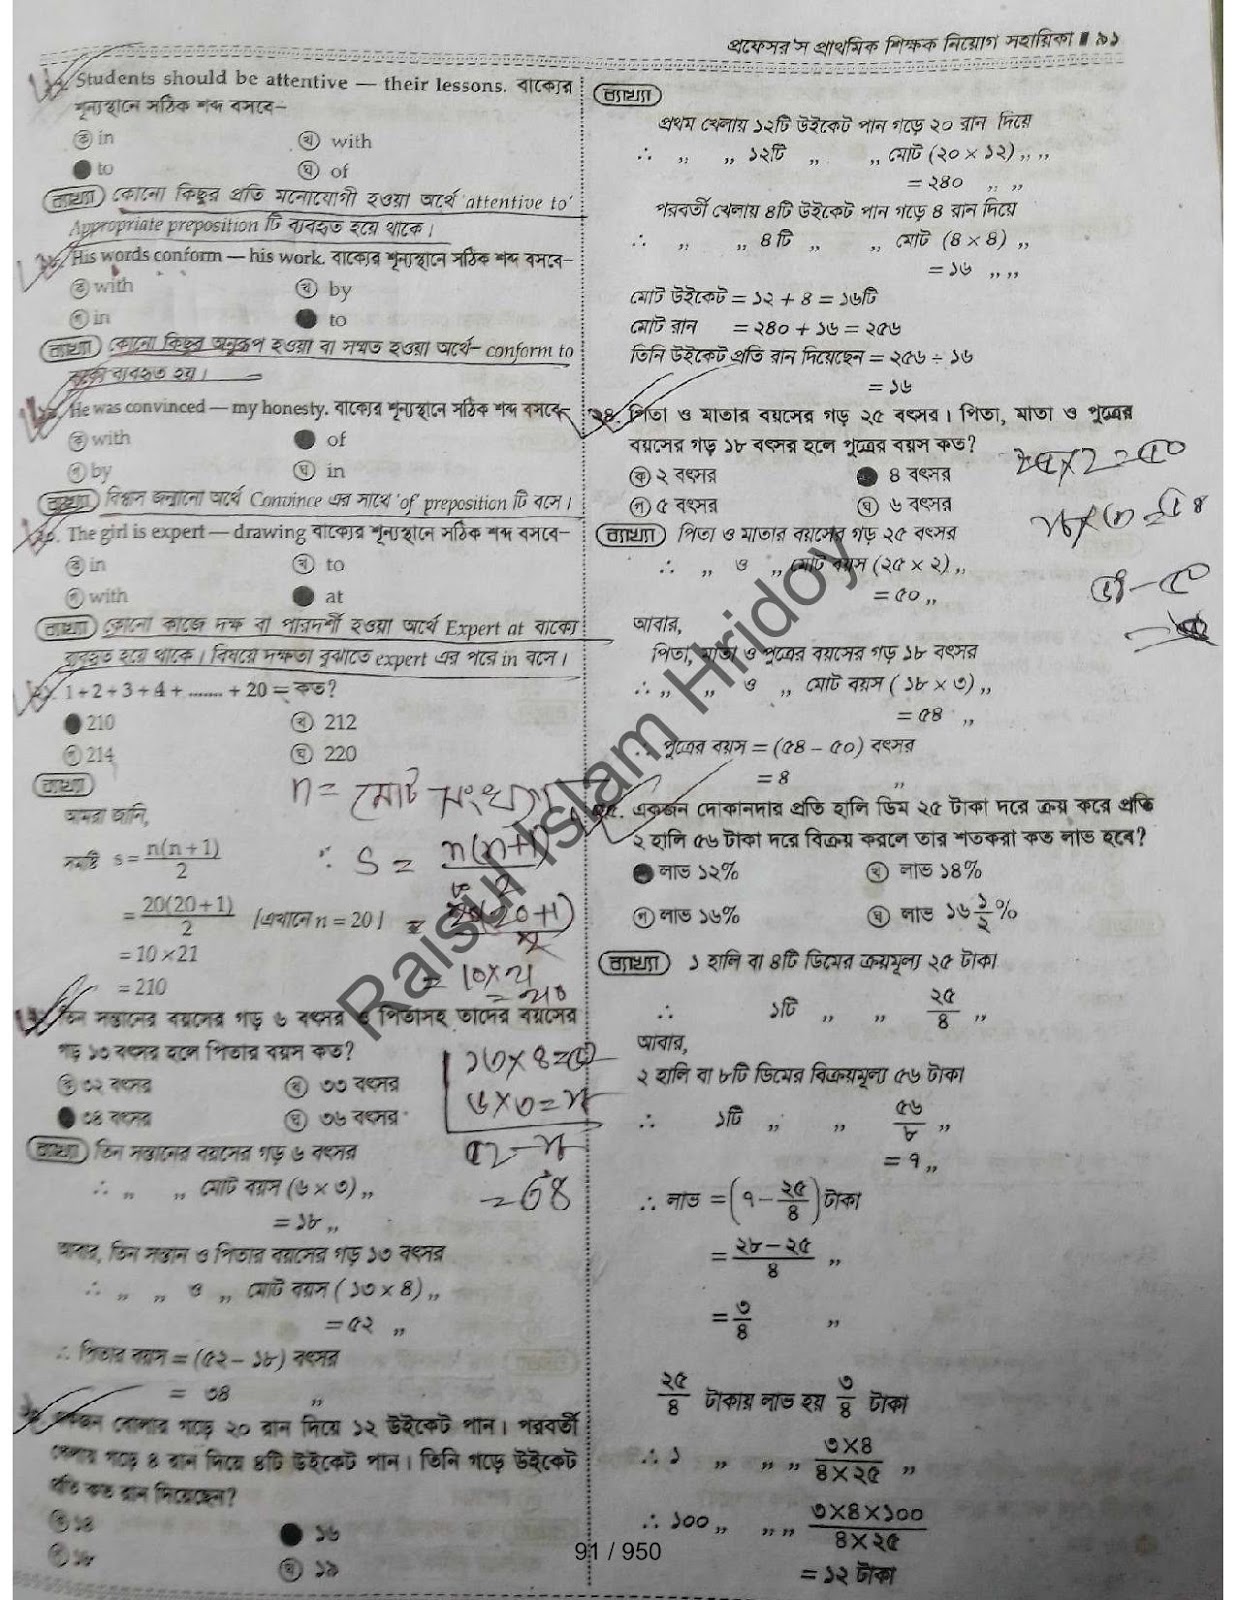 প্রফেসর'স প্রাথমিক শিক্ষক নিয়োগ সহায়িকা ■ ৯১
Students should be attentive — their lessons. বাক্যের
শূন্যস্থানে সঠিক শব্দ বসবে–
ক in
খ with
to
ঘ of
ব্যাখ্যা কোনো কিছুর প্রতি মনোযোগী হওয়া অর্থে 'attentive to'
Appropriate preposition টি ব্যবহৃত হয়ে থাকে।
His words conform — his work. বাক্যের শূন্যস্থানে সঠিক শব্দ বসবে–
ক with
খ by
গ in
to
ব্যাখ্যা কোনো কিছুর অনুরূপ হওয়া বা সম্মত হওয়া অর্থে– conform to
বাক্যে ব্যবহৃত হয়।
He was convinced — my honesty. বাক্যের শূন্যস্থানে সঠিক শব্দ বসবে
ক with
of
গ by
ঘ in
ব্যাখ্যা বিশ্বাস জন্মানো অর্থে Convince এর সাথে 'of' preposition টি বসে।
The girl is expert — drawing বাক্যের শূন্যস্থানে সঠিক শব্দ বসবে–
ক in
খ to
গ with
at
ব্যাখ্যা কোনো কাজে দক্ষ বা পারদর্শী হওয়া অর্থে Expert at বাক্যে
ব্যবহৃত হয়ে থাকে। বিষয়ে দক্ষতা বুঝাতে expert এর পরে in বসে।
1 + 2 + 3 + 4 + ....... + 20 = কত?
210
খ 212
গ 214
ঘ 220
ব্যাখ্যা
আমরা জানি,
সমষ্টি s = n(n + 1)/2
= 20(20 + 1)/2 [এখানে n = 20]
= 10 × 21
= 210
n = মোট সংখ্যা
∴ S = n(n+1)/2
= 20(20+1)/2
= 10×21
= 210
তিন সন্তানের বয়সের গড় ৬ বৎসর ও পিতাসহ তাদের বয়সের
গড় ১৩ বৎসর হলে পিতার বয়স কত?
ক ৩২ বৎসর
খ ৩৩ বৎসর
৩৪ বৎসর
ঘ ৩৬ বৎসর
১৩×৪=৫২
৬×৩=১৮
৫২–১৮
=৩৪
ব্যাখ্যা তিন সন্তানের বয়সের গড় ৬ বৎসর
∴ „ „ মোট বয়স (৬ × ৩) „
= ১৮ „
আবার, তিন সন্তান ও পিতার বয়সের গড় ১৩ বৎসর
∴ „ „ ও „ মোট বয়স ( ১৩ × ৪) „
= ৫২ „
∴ পিতার বয়স = (৫২ – ১৮) বৎসর
= ৩৪ „
একজন বোলার গড়ে ২০ রান দিয়ে ১২ উইকেট পান। পরবর্তী
খেলায় গড়ে ৪ রান দিয়ে ৪টি উইকেট পান। তিনি গড়ে উইকেট
প্রতি কত রান দিয়েছেন?
ক ১৪
১৬
গ ১৮
ঘ ১৯
ব্যাখ্যা
প্রথম খেলায় ১২টি উইকেট পান গড়ে ২০ রান দিয়ে
∴ „ „ ১২টি „ „ মোট (২০ × ১২) „ „
= ২৪০ „ „
পরবর্তী খেলায় ৪টি উইকেট পান গড়ে ৪ রান দিয়ে
∴ „ „ ৪টি „ „ মোট (৪ × ৪) „
= ১৬ „ „
মোট উইকেট = ১২ + ৪ = ১৬টি
মোট রান = ২৪০ + ১৬ = ২৫৬
তিনি উইকেট প্রতি রান দিয়েছেন = ২৫৬ ÷ ১৬
= ১৬
২৪. পিতা ও মাতার বয়সের গড় ২৫ বৎসর। পিতা, মাতা ও পুত্রের
বয়সের গড় ১৮ বৎসর হলে পুত্রের বয়স কত?
ক ২ বৎসর
৪ বৎসর
গ ৫ বৎসর
ঘ ৬ বৎসর
২৫×2=৫০
১৮×৩=৫৪
৫৪–৫০
ব্যাখ্যা পিতা ও মাতার বয়সের গড় ২৫ বৎসর
∴ „ ও „ মোট বয়স (২৫ × ২) „
= ৫০ „
আবার,
পিতা, মাতা ও পুত্রের বয়সের গড় ১৮ বৎসর
∴ „ „ ও „ মোট বয়স ( ১৮ × ৩) „
= ৫৪ „
∴ পুত্রের বয়স = (৫৪ – ৫০) বৎসর
= ৪ „
২৫. একজন দোকানদার প্রতি হালি ডিম ২৫ টাকা দরে ক্রয় করে প্রতি
২ হালি ৫৬ টাকা দরে বিক্রয় করলে তার শতকরা কত লাভ হবে?
লাভ ১২%
খ লাভ ১৪%
গ লাভ ১৬%
ঘ লাভ ১৬ ১/২ %
ব্যাখ্যা ১ হালি বা ৪টি ডিমের ক্রয়মূল্য ২৫ টাকা
∴ ১টি „ „ ২৫/৪ „
আবার,
২ হালি বা ৮টি ডিমের বিক্রয়মূল্য ৫৬ টাকা
∴ ১টি „ „ ৫৬/৮ „
= ৭ „
∴ লাভ = (৭ – ২৫/৪) টাকা
= ২৮ – ২৫/৪ „
= ৩/৪ „
২৫/৪ টাকায় লাভ হয় ৩/৪ টাকা
∴ ১ „ „ „ ৩×৪/৪×২৫ „
∴ ১০০ „ „ „ ৩×৪×১০০/৪×২৫
= ১২ টাকা
Raisul Islam Hridoy
91 / 950